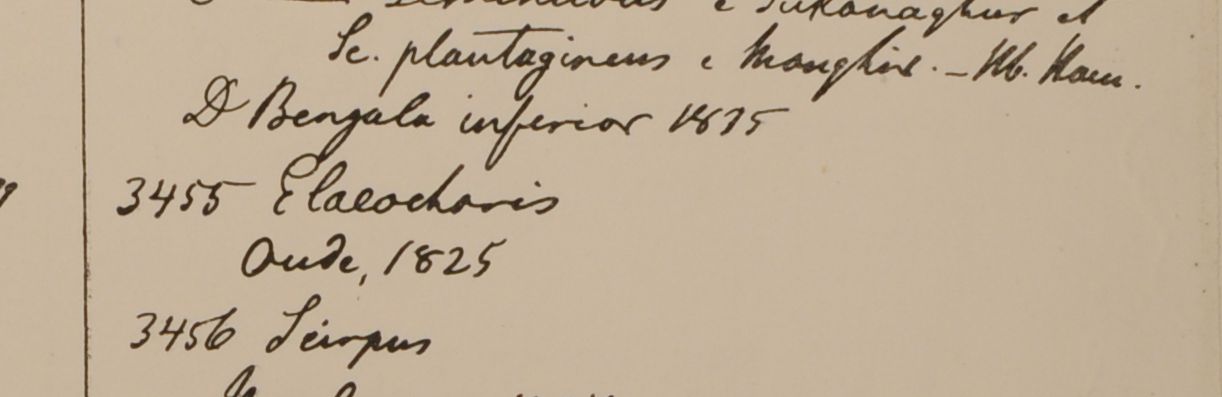 Sukanaghur et
Sc. plantagineus e Monghir. – Hb. Ham.
D Bengala inferior 1835
3455 Elaeocharis
Oude, 1825
3456 Scirpus